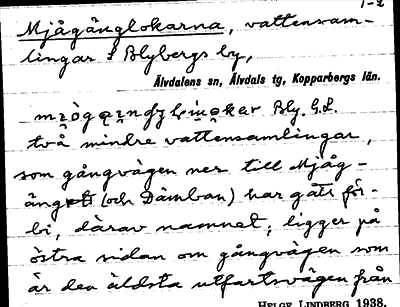 1-2
Mjågånglokarna, vattensam-
lingar i Blybergs by,
Älvdalens sn, Älvdals tg, Kopparbergs län.
Bly. G.L.
två mindre vattensamlingar,
som gångvägen ner till Mjåg-
äng (och Dämban) har gått för-
bi, därav namnet; ligger på
östra sidan om gångvägen som
är den äldsta utfartsvägen från
HELGE LINDBERG 1938.